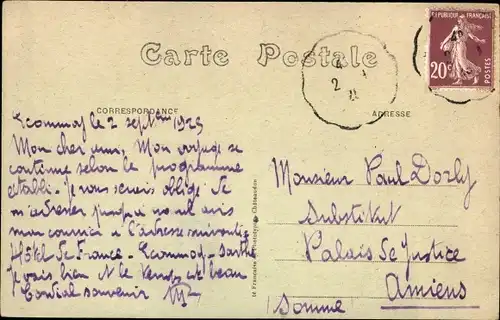 RÉPUBLIQUE FRANÇAISE
20c
POSTES
Carte Postale
CORRESPONDANCE
ADRESSE
Ecommoy le 2 septbre 1925
Mon cher ami, Mon voyage se
continue selon le programme
établi - je vous serais obligé de
m'adresser jusqu'à nouvel avis
mon courrier à l'adresse suivante
Hôtel de France - Ecommoy - Sarthe
je vais bien et le temps est beau
Cordial souvenir
Monsieur Paul Dorly
Substitut
Palais de Justice
Amiens
Somme
Phototypie Châteaudun